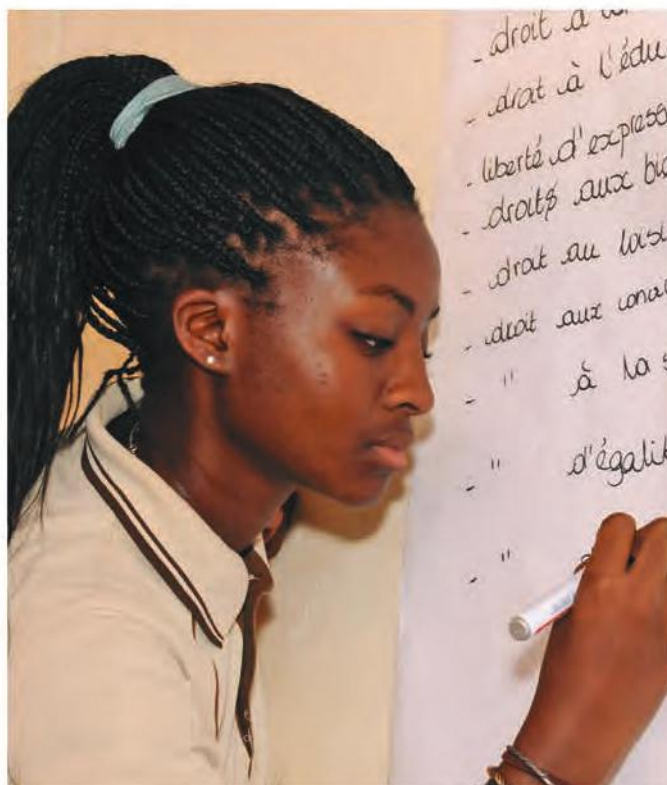 - droit à
- droit à l'édu
- liberté d'express
- droits aux bi
- droit au lois
- droit aux
- " à la s
- " d'égalit
- "